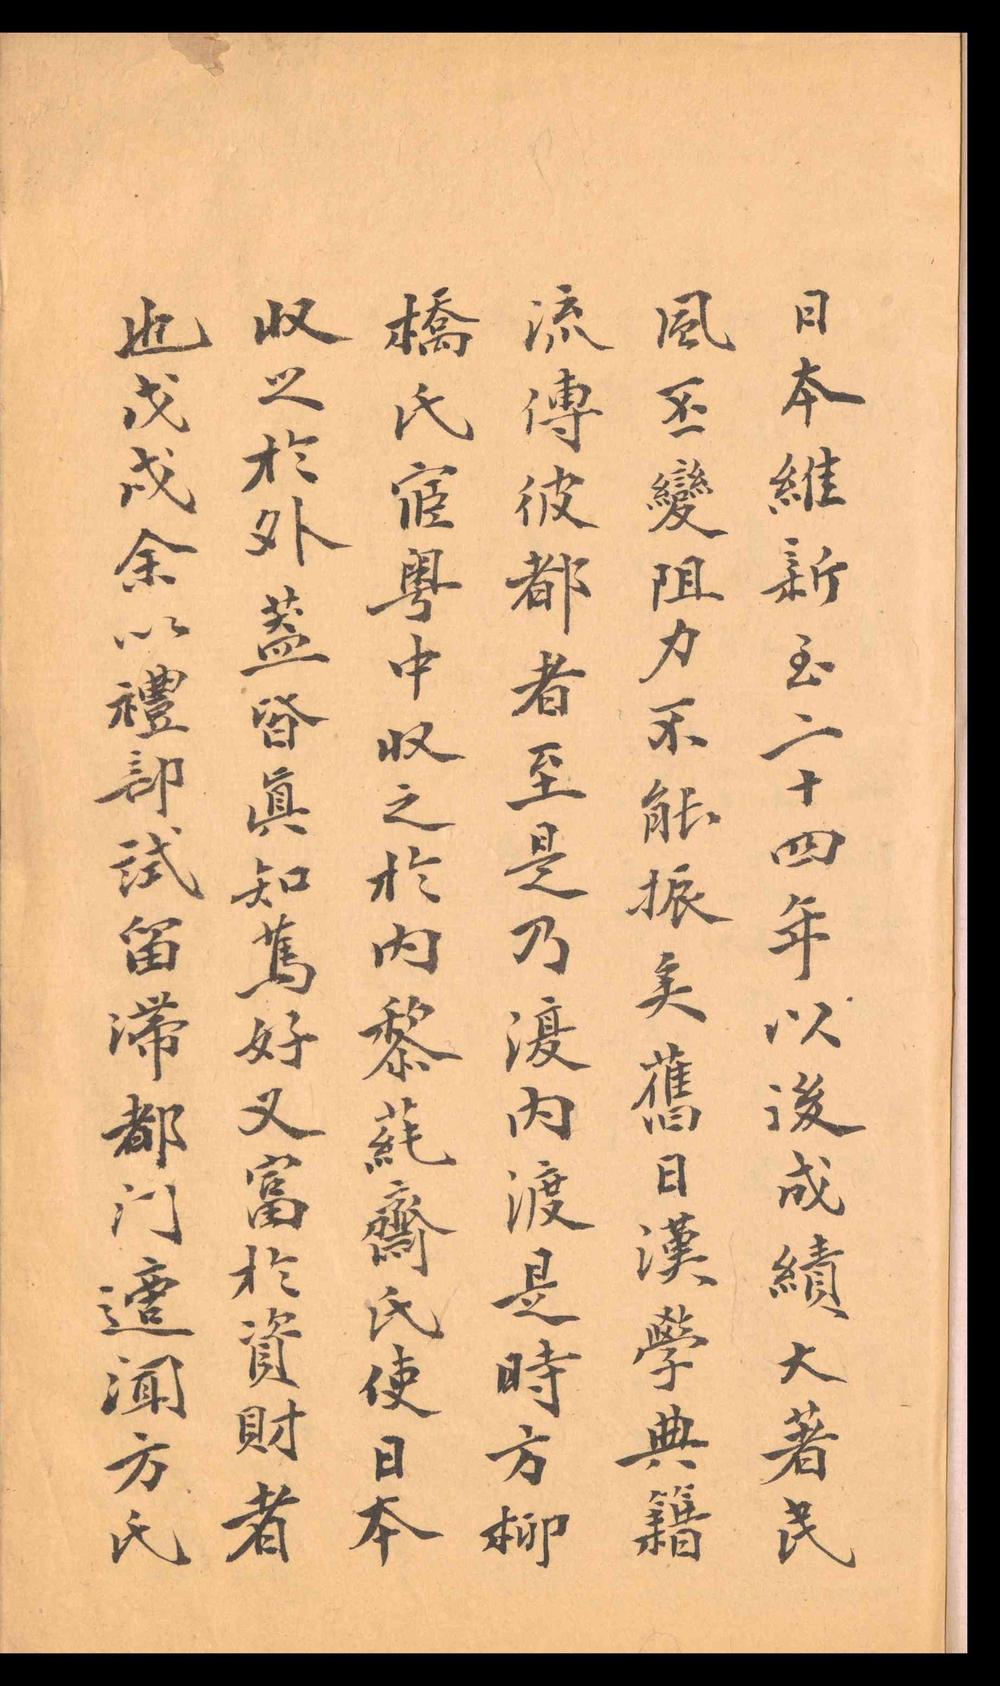 日本維新至二十四年以後成績大著民
風丕變阻力不能振矣舊日漢學典籍
流傳彼都者至是乃漫內渡是時方柳
橋氏宦粵中收之於內黎蒓齋氏使日本
收之於外蓋皆真知篤好又富於資財者
也戊戌余以禮部試留滯都門適聞方氏